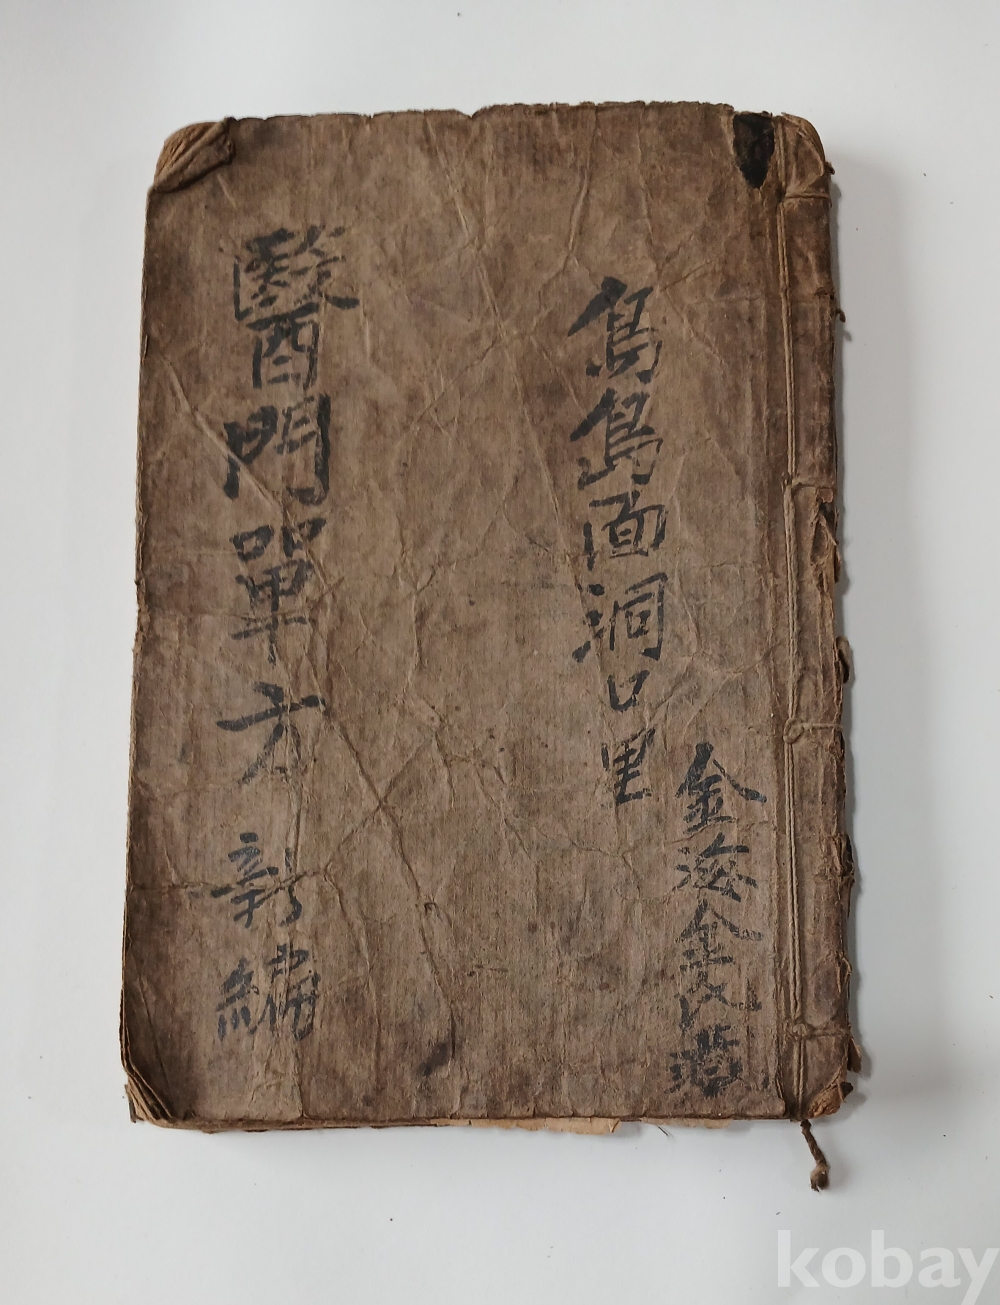 金海金氏
鳥島面洞口里
醫門單方 新編
kobay